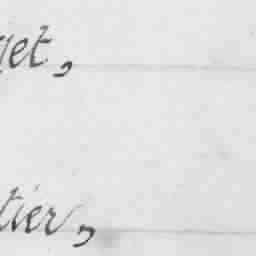 get,
tier,